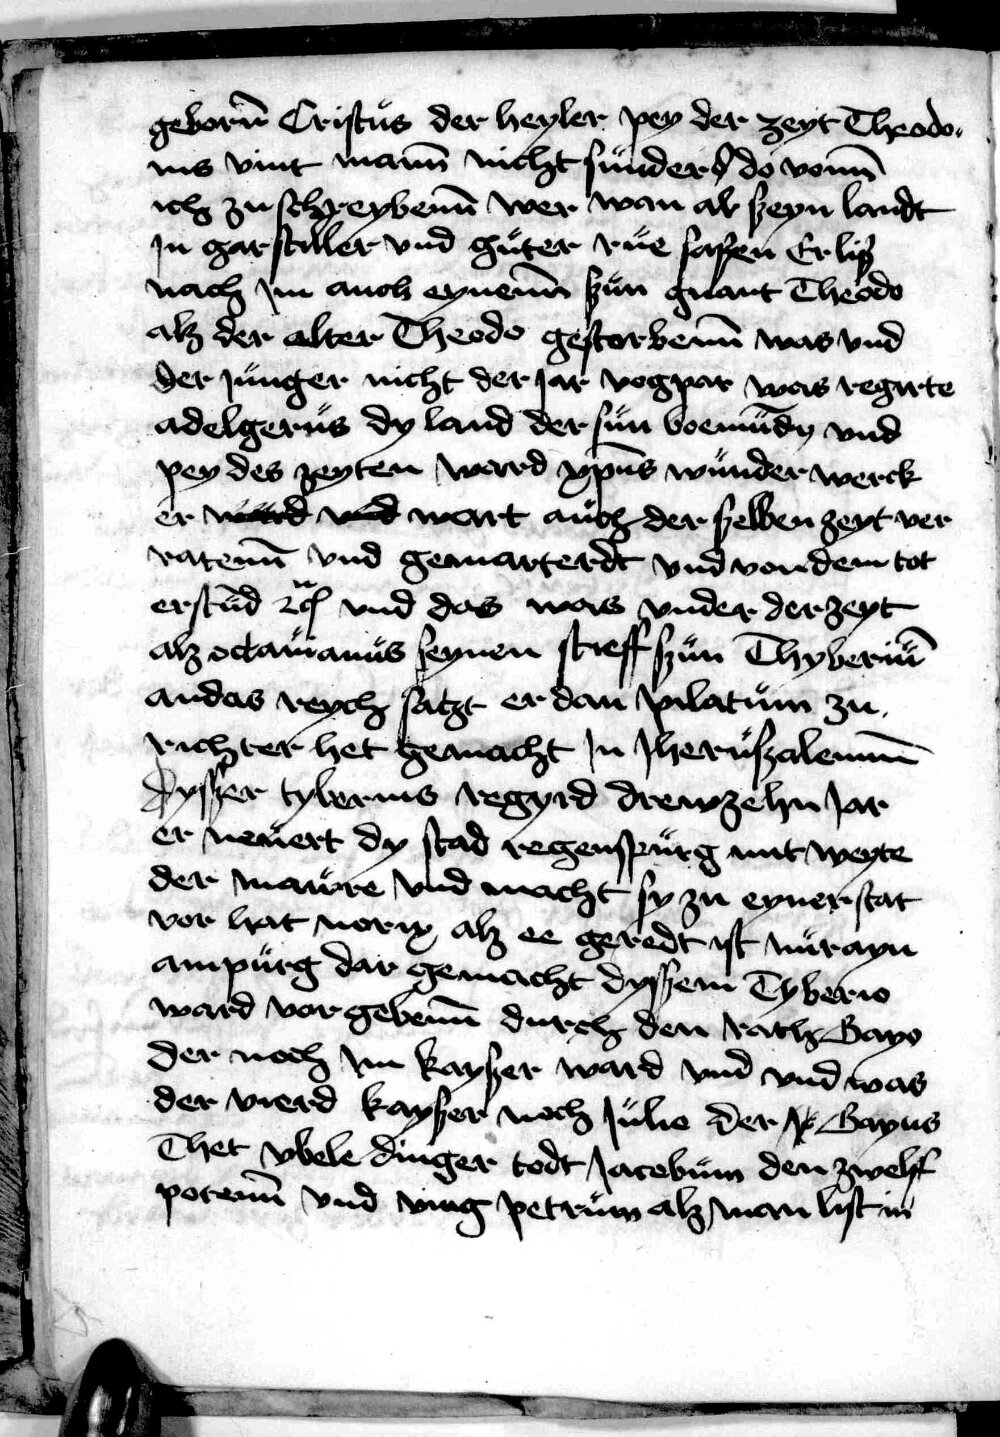 geborñ Cristus der heyler pey der zeyt Theodo-
nis vint mann nicht sunders do vonn
ich zu schreybenn wer wan al szeyn landt
Jn gar stiller vnd guter rue sassen Er lisz
nach Jm auch eynenn szun gnant Theodo
alsz der alter Theodo gestorbenn was vnd
der Junger nicht der Jar vogpar was regirte
adelgerus dy land der sun boemundy vnd
pey des zeyten ward xpus wunder werck
er wart auch der szelben zeyt ver
ratenn vnd gemarterdt vnd von dem tot
erstund vnd das was vnder der zeyt
alsz octauianus seynen stieff szun Thyberium
an das reych satzt er dan pilatum zu
richter het gemacht Jn Jheruszalemm
dyszer tyberius regyrd drewzehn Jar
er neuert dy stad regenspurg mit weyte
der maure vnd macht sy zu eyner stat
vor hat norix alsz ee geredt ist nur ayn
ampurg dar gemacht dyszem Tyberio
ward vorgebenn durch den rath Gayo
der noch Jm kayszer ward vnd vnd was
der vierd kayszer noch Julio der Gayus
Thet vbele dinger todt Jacobum den zwelf
potenn vnd ving petrum alsz man list in